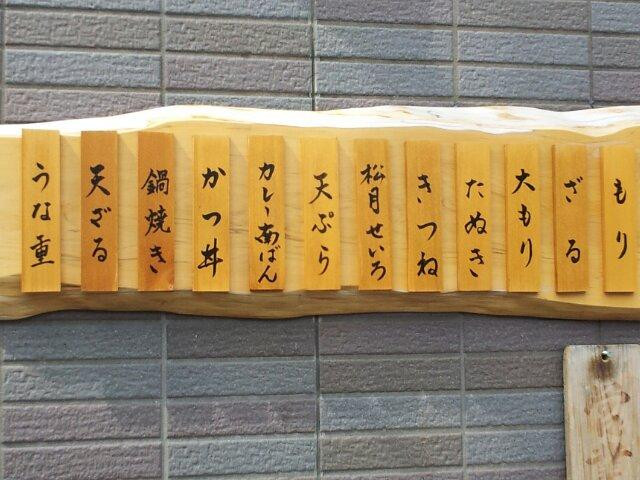 もり
ざる
大もり
たぬき
きつね
松月せいろ
天ぷら
カレーあばん
かつ丼
鍋焼き
天ざる
うな重